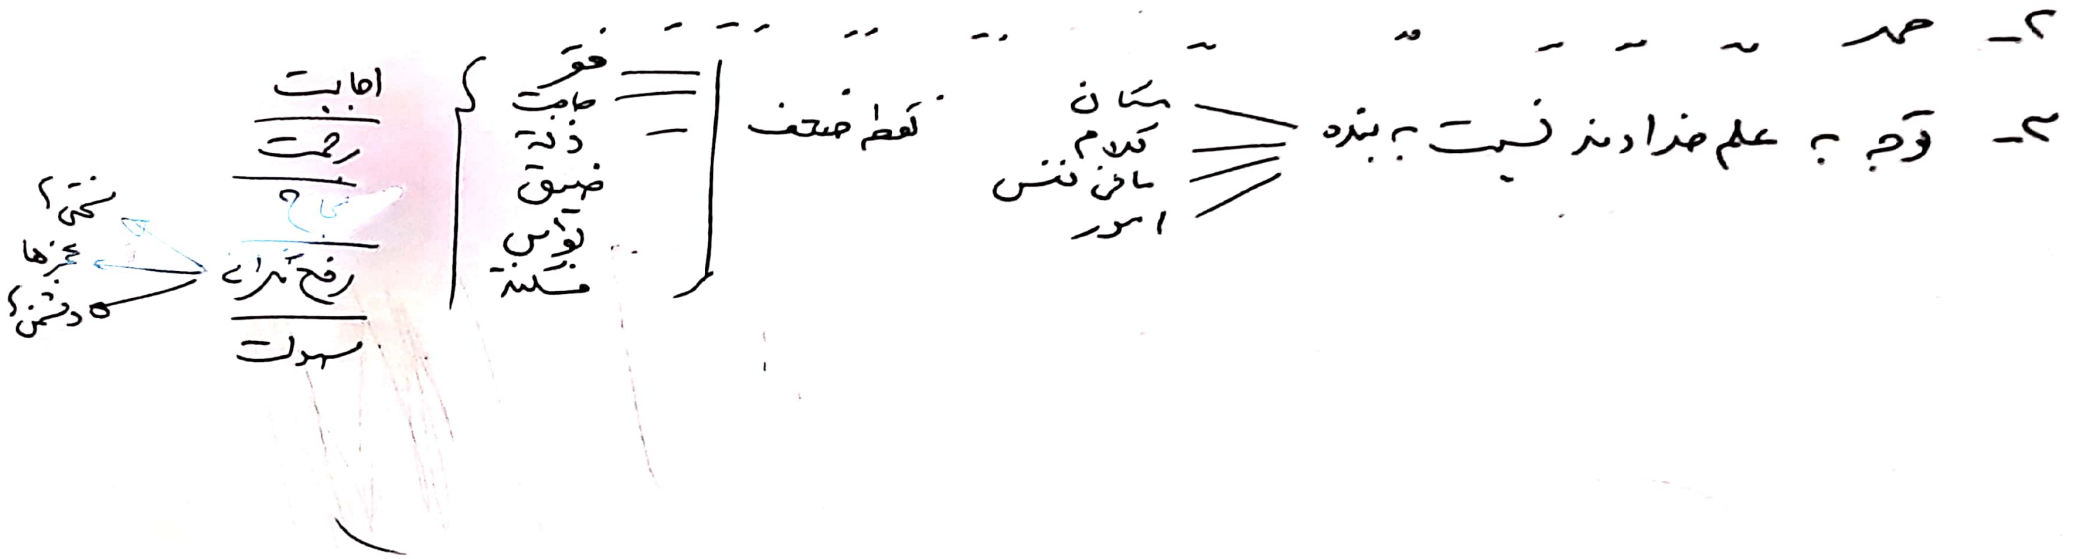 ۲- حمد
۳- توجه به علم خداوند نسبت به بنده
مکان
کلام
مافی نفس
امور
نقطه ضعف
فقر
حاجت
ذلة
ضیق
مسکنة
اجابت
رحمت
سهولت
سختی؟
عجزها
دشمن؟